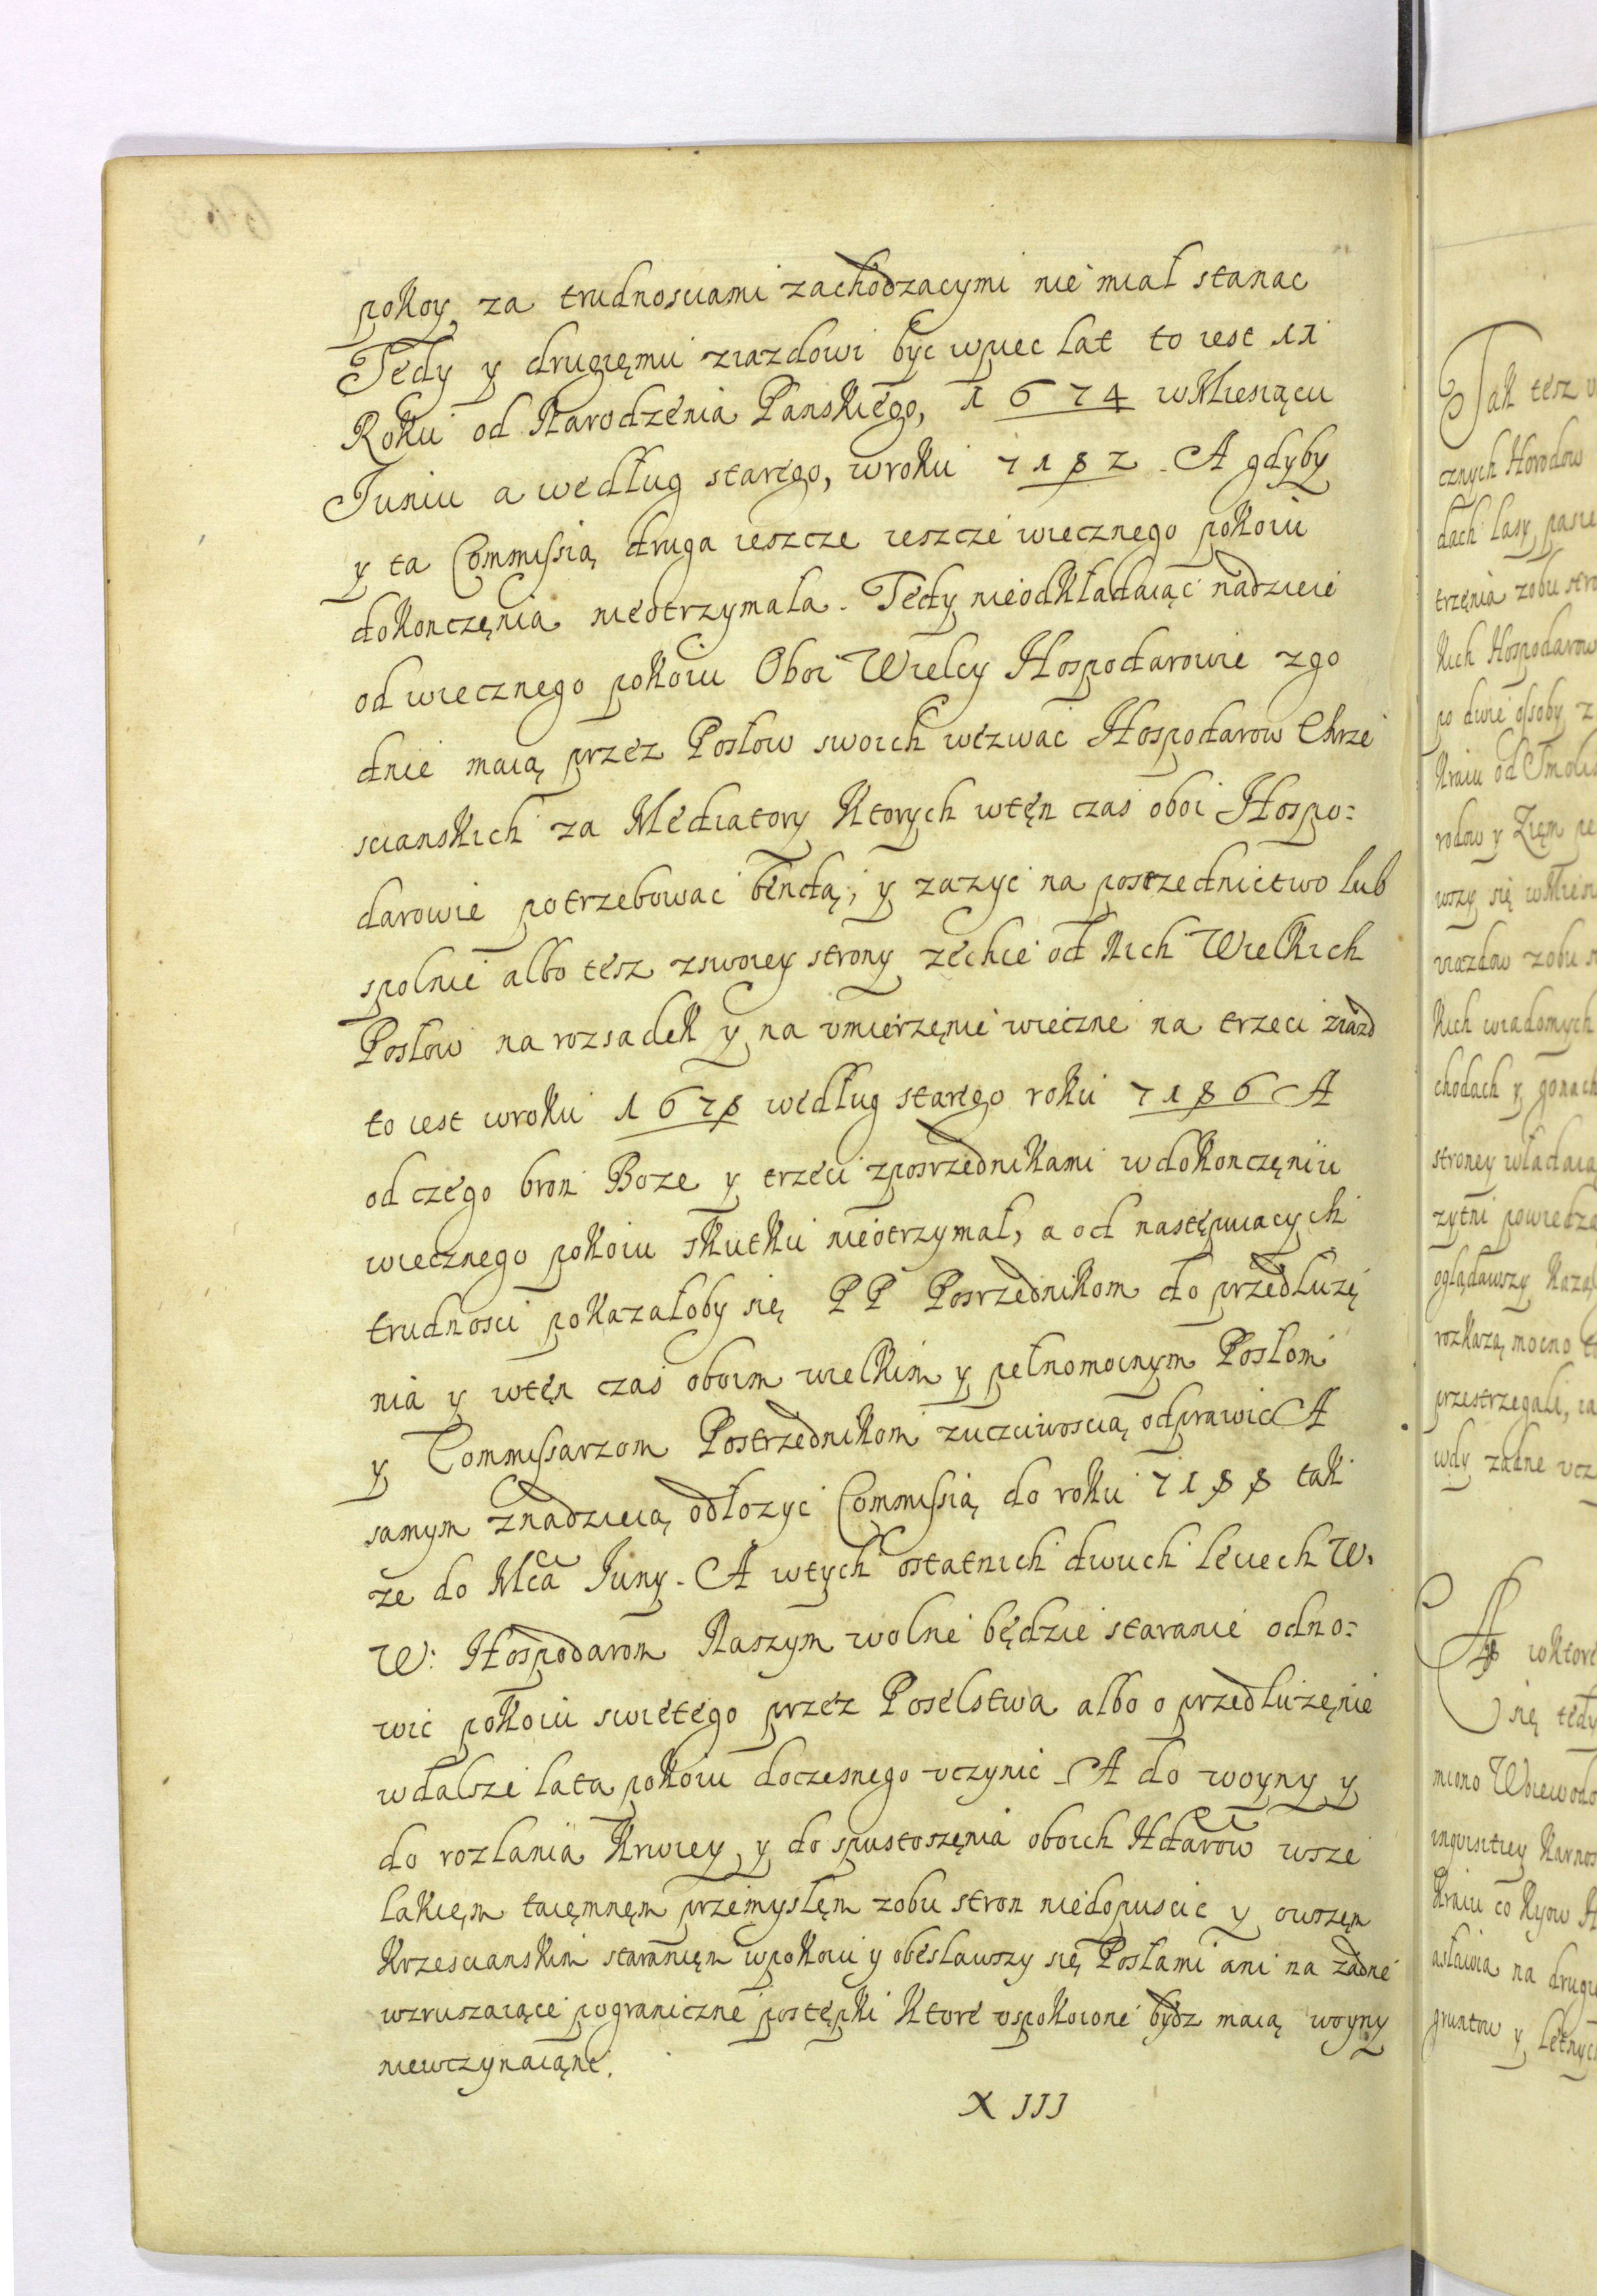 pokoy za trudnosciami zachodzacymi nie miał stanac
Tedy y drugięmu ziazdowi byc wpiec lat to iest 11
Roku od Narodzenia Panskiego, 1674 wMiesiącu
Juniu a według starego, wroku 7182. A gdyby
y ta Commissią druga ieszcze ieszcze wiecznego pokoiu
dokonczęnia nieotrzymała. Tedy nieodkładaiąc nadzieie
od wiecznego pokoiu Oboi Wielcy Hospodarowie zgo
dnie maią przez Posłow swoich wezwac Hospodarow Chrze
scianskich za Mediatory Ktorych wtęn czas oboi Hospo:
darowie potrzebowac bendą, y zazyc na posrzednictwo lub
spolnie albo tesz zswoiey strony zechce od Nich Wielkich
Posłow na rozsadek y na vmierzęnie wieczne na trzeci ziazd
to iest wroku 1678 według starego roku 7186 A
od czego bron Boze y trzeci zposrzednikami wdokonczęniu
wiecznego pokoiu skutku nieotrzymał, a od następuiacych
trudnosci pokazałoby się PP Posrzednikom do przedluzę
nia y wtęn czas oboim wielkim y pełnomocnym Posłom
y Commissarzom Postrzednikom zuczciwoscią odprawic A
samym znadzieią odłozyc Commissią do roku 7188 tak
ze do Mca Juny. A wtych ostatnich dwuch leciech W.
W: Hospodarom Naszym wolne będzie staranie odno:
wic pokoiu swietego przez Poselstwa albo o przedluzęnie
wdalsze lata pokoiu doczesnego vczynic. A do woyny y
do rozlania Krwiey y do spustoszęnia oboich Hdarow wsze
lakięm taięmnęm przemyslęm zobu stron niedopuscic y owszęm
Krzescianskim staranięm wpokoiu y obesławszy się Posłami ani na żadne
wzruszaiące pograniczne postępki Ktore vspokoione bydz maią woyny
niewczynaiąne.
XIII
Tak tesz
cznych Horodow
dach lasy
trzęnia zobu
Kich Hospodarow
po dwie osoby z
Kraiu od
rodow y Zięm
wszy się
zobu
Kich wiadomych
chodach y gonach
stroney
powiedz
oglądawszy
rozkażą mocno
przestrzegali,
wdy żadne
A
się tedy
miano
Kraiu co Kyow
na drugi
gruntow y